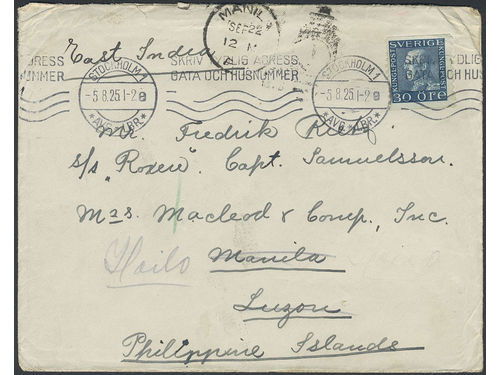 MANILA
SEP 22
12 M
East India
ADRESS SKRIV TYDLIG ADRESS, SKRIV TYDLIG
NUMMER GATA OCH HUSNUMMER GATA
STOCKHOLM 1
-5.8.25 1-2 e
* AVG. LBR. *
STOCKHOLM 1
-5.8.25 1-2 e
* AVG. LBR. *
SVERIGE
KUNGL POST
30 ÖRE
Mr. Fredrik
s/s "Roxen". Capt. Samuelsson.
Mrs. Macleod & Comp., Inc.
Iloilo Manila
Luzon
Philippine Islands